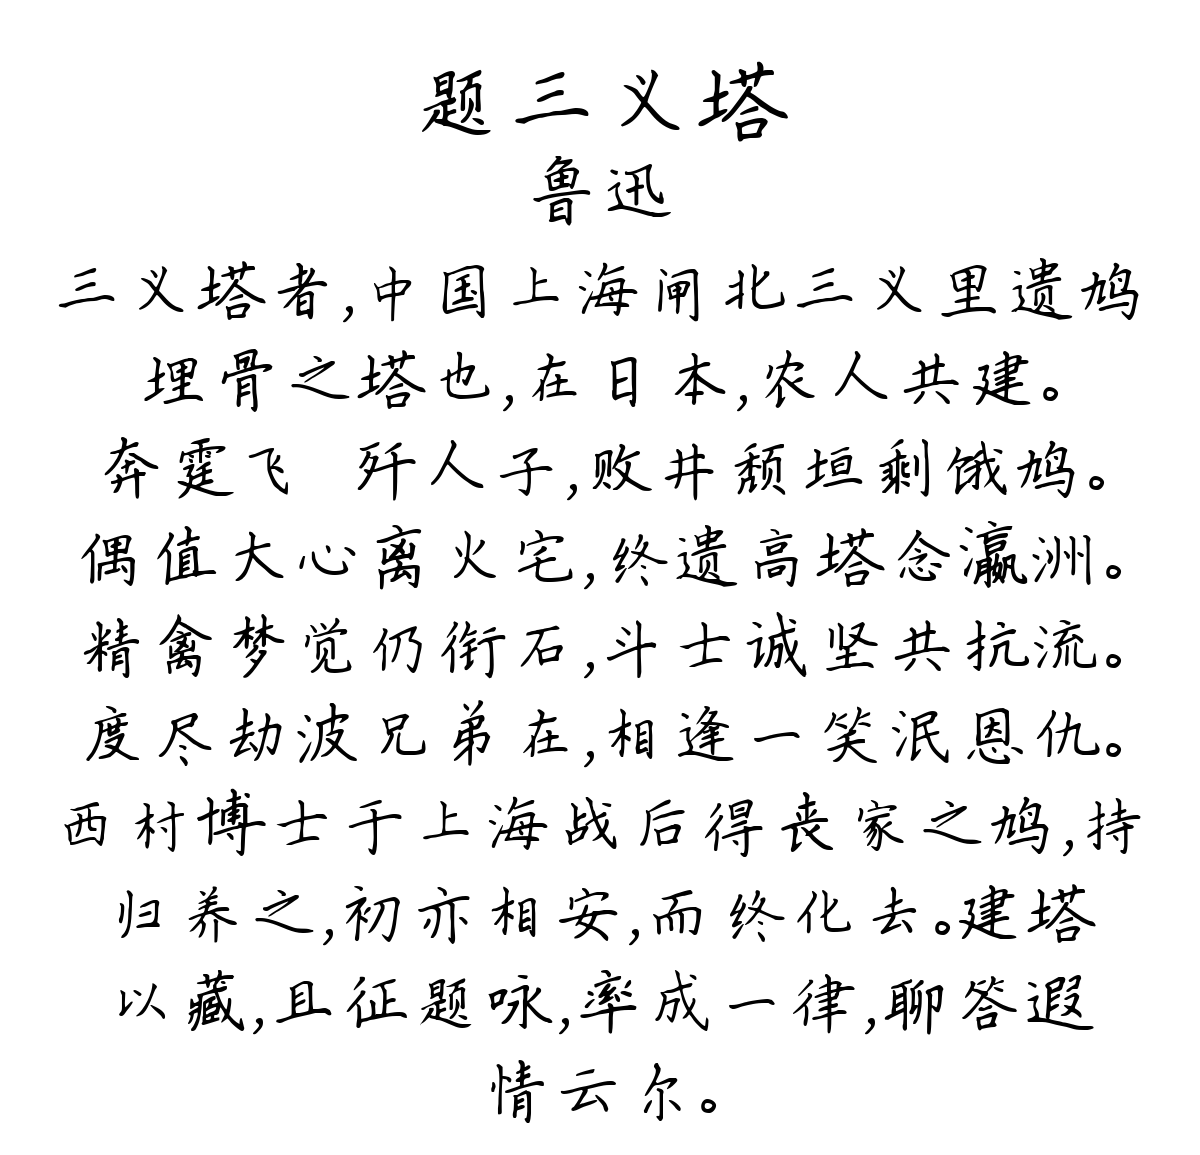 题三义塔
鲁迅
三义塔者,中国上海闸北三义里遗鸠
埋骨之塔也,在日本,农人共建。
奔霆飞 歼人子,败井颓垣剩饿鸠。
偶值大心离火宅,终遗高塔念瀛洲。
精禽梦觉仍衔石,斗士诚坚共抗流。
度尽劫波兄弟在,相逢一笑泯恩仇。
西村博士于上海战后得丧家之鸠,持
归养之,初亦相安,而终化去。建塔
以藏,且征题咏,率成一律,聊答遐
情云尔。